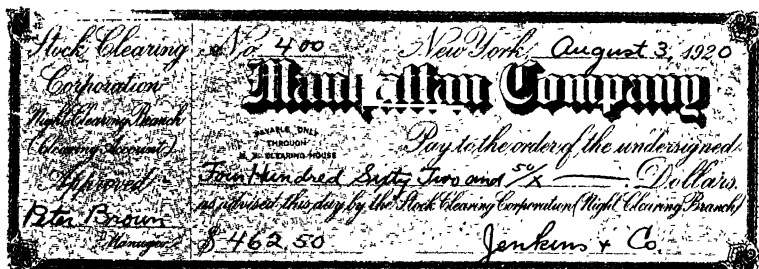 Stock Clearing
Corporation
Night Clearing Branch
(Clearing Account)
Approved
Peter Brown
Manager
No 400 New York, August 3, 1920
Manhattan Company
PAYABLE ONLY
THROUGH
N. Y. CLEARING HOUSE
Pay to the order of the undersigned
Four Hundred Sixty Two and 50/x Dollars.
as advised this day by the Stock Clearing Corporation (Night Clearing Branch)
$ 462 50 Jenkins + Co.